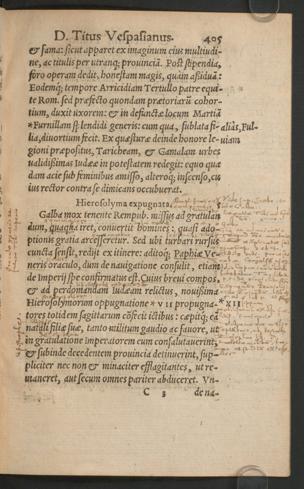 D. Titus Vespasianus. 405
& fama: sicut apparet ex imaginum eius multitudi-
ne, ac titulis per utranq; prouinciā. Post stipendia,
foro operam dedit, honestam magis, quàm assiduā:
Eodemq; tempore Arricidiam Tertullo patre equi-
te Rom. sed præfecto quondam prætoriarū cohor-
tium, duxit uxorem: & in defunctæ locum Martiā
*Furnillam splendidi generis: cum qua, sublata fi- alias, Ful-
lia, diuortium fecit. Ex quæsturæ deinde honore le- uiam
gioni præpositus, Taricheam, & Gamalam urbes
ualidissimas Iudææ in potestatem redegit: equo quo
dam acie sub feminibus amisso, alteroq; inscenso, cu
ius rector contra se dimicans occubuerat.
Hierosolyma expugnata. 5
Galba mox tenente Rempub. missus ad gratulan
dum, quaqua iret, conuertit homines: quasi ado-
ptionis gratia arcesseretur. Sed ubi turbari rursus
cuncta sensit, redijt ex itinere: aditoq; Paphiæ Ve-
neris oraculo, dum de nauigatione consulit, etiam
de Imperij spe confirmatus est. Cuius breui compos,
& ad perdomandam Iudæam relictus, nouissima
Hierosolymorum oppugnatione * VII propugna- * XII
tores totidem sagittarum cōfecit ictibus: cæpitq; eā
natali filiæ suæ, tanto militum gaudio ac fauore, ut
in gratulatione Imperatorem eum consalutauerint,
& subinde decedentem prouincia detinuerint, sup-
pliciter nec non & minaciter efflagitantes, ut re-
maneret, aut secum omnes pariter abduceret. Vn-
C 3 de na-